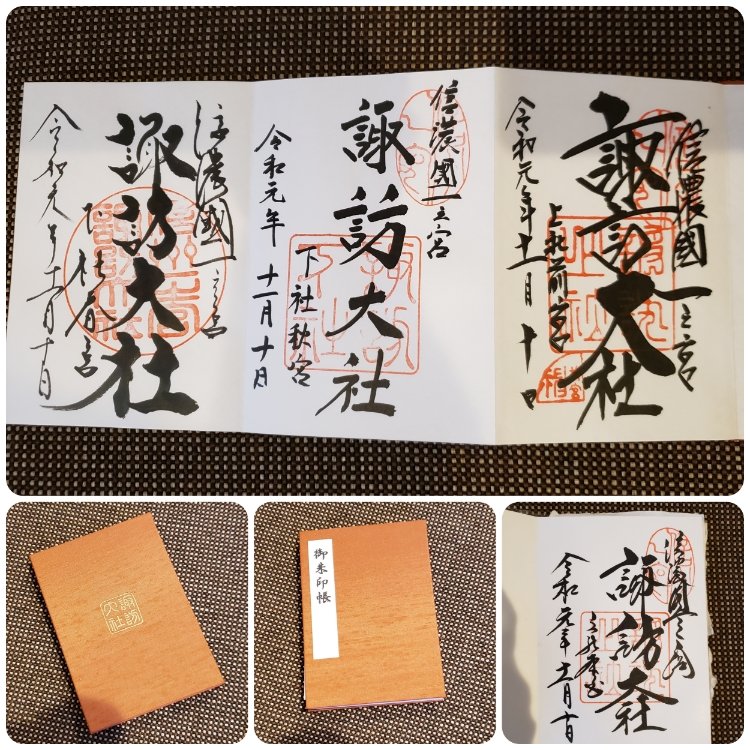 信濃國一之宮
諏訪大社
上社前宮
令和元年十一月十日
信濃國一之宮
諏訪大社
下社秋宮
令和元年十一月十日
信濃國一之宮
諏訪大社
下社春宮
令和元年十一月十日
諏訪
大社
御朱印帳
信濃國一之宮
諏訪大社
上社本宮
令和元年十一月十日